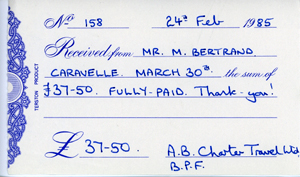 No 158 24th Feb 1985
Received from MR. M. BERTRAND
CARAVELLE. MARCH 30th. the sum of
£37-50. FULLY-PAID. Thank-you!
£ 37-50. A.B. Charter Travel Ltd
B.P.F.
TERSTON PRODUCT